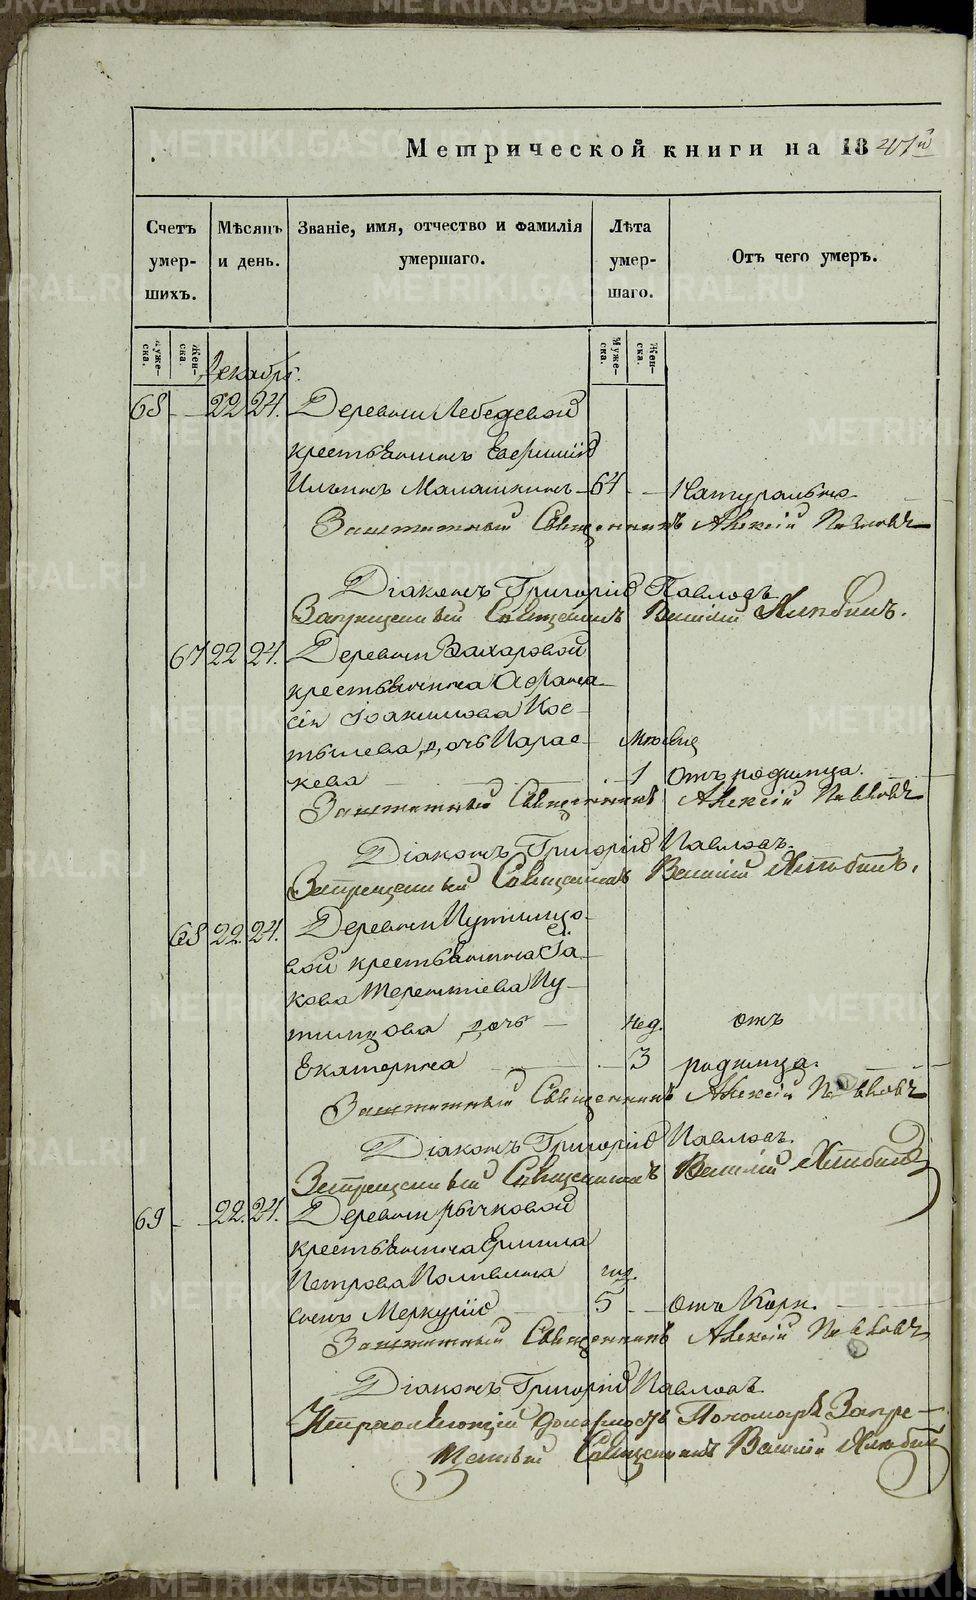 METRIKI.GASO-URAL.RU
Метрической книги на 18
Счетъ умер-шихъ.
Мѣсяцъ и день.
Званіе, имя, отчество и фамилія умершаго.
Лѣта умер-шаго.
Отъ чего умеръ.
Муже-ска.
Жен-ска.
Муже-ска.
Жен-ска.
Декабрь.
68 22 24. Деревни Лебедевой
крестьянинъ Евфимій
Ильинъ Малашкинъ 64 Натурально
Заштатный Священникъ Алексій Павловъ
Діаконъ Григорій Павловъ
Запрещенный Священникъ Василій
67 22 24. Деревни Захаровой
крестьянина Афана-
сія Іоакимова Кос-
тылева дочь Парас- Мѣсяц
кева 1 Отъ родимца.
Заштатный Священникъ Алексій Павловъ
Діаконъ Григорій Павловъ.
Запрещенный Священникъ Василій
68 22 24. Деревни Путимцо-
вой крестьянина Іа-
кова Терентіева Пу-
тимцова дочь Нед. отъ
Екатерина 3 родимца.
Заштатный Священникъ Алексій Павловъ
Діаконъ Григорій Павловъ.
Запрещенный Священникъ Василій
69 22. 24. Деревни Рычковой
крестьянина Ермила
Петрова год.
сынъ Меркурій 5 Отъ Кори.
Заштатный Священникъ Алексій Павловъ
Діаконъ Григорій Павловъ
должность Пономаря Запре-
щенный Священникъ Василій